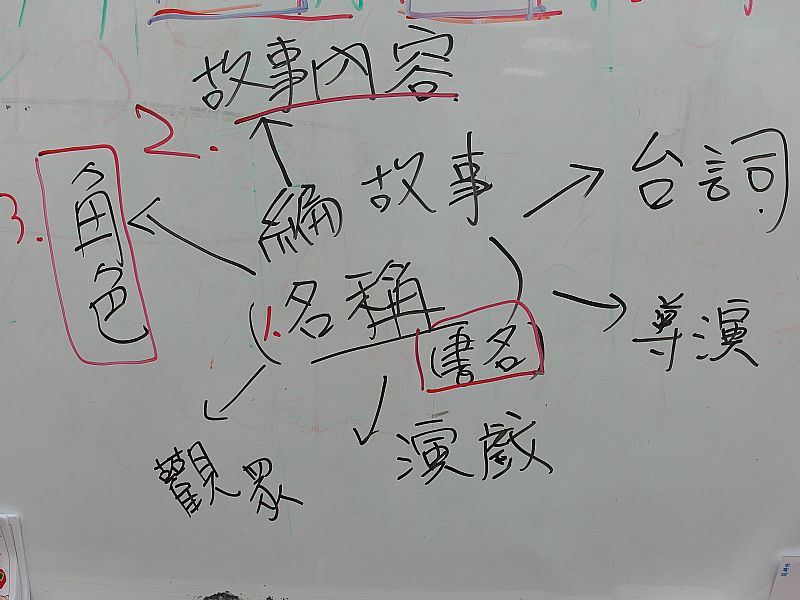 故事內容
2.
編故事
台詞
3.
角色
1.名稱
(書名)
導演
觀眾
演戲